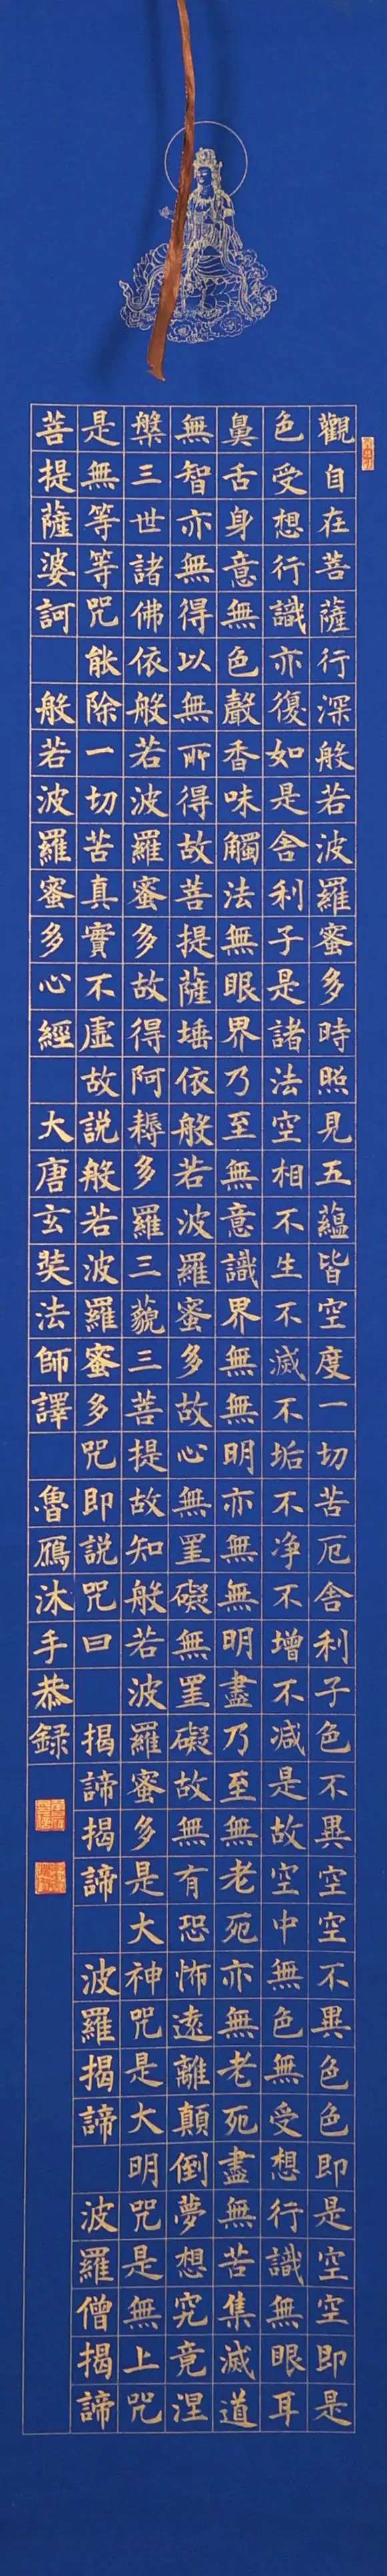 觀自在菩薩行深般若波羅蜜多時照見五蘊皆空度一切苦厄舍利子色不異空空不異色色即是空空即是
色受想行識亦復如是舍利子是諸法空相不生不滅不垢不净不增不減是故空中無色無受想行識無眼耳
鼻舌身意無色聲香味觸法無眼界乃至無意識界無無明亦無無明盡乃至無老死亦無老死盡無苦集滅道
無智亦無得以無所得故菩提薩埵依般若波羅蜜多故心無罣礙無罣礙故無有恐怖遠離顛倒夢想究竟涅
槃三世諸佛依般若波羅蜜多故得阿耨多羅三藐三菩提故知般若波羅蜜多是大神咒是大明咒是無上咒
是無等等咒能除一切苦真實不虛故説般若波羅蜜多咒即説咒曰 揭諦揭諦 波羅揭諦 波羅僧揭諦
菩提薩婆訶 般若波羅蜜多心經 大唐玄奘法師譯 魯鴈沐手恭録